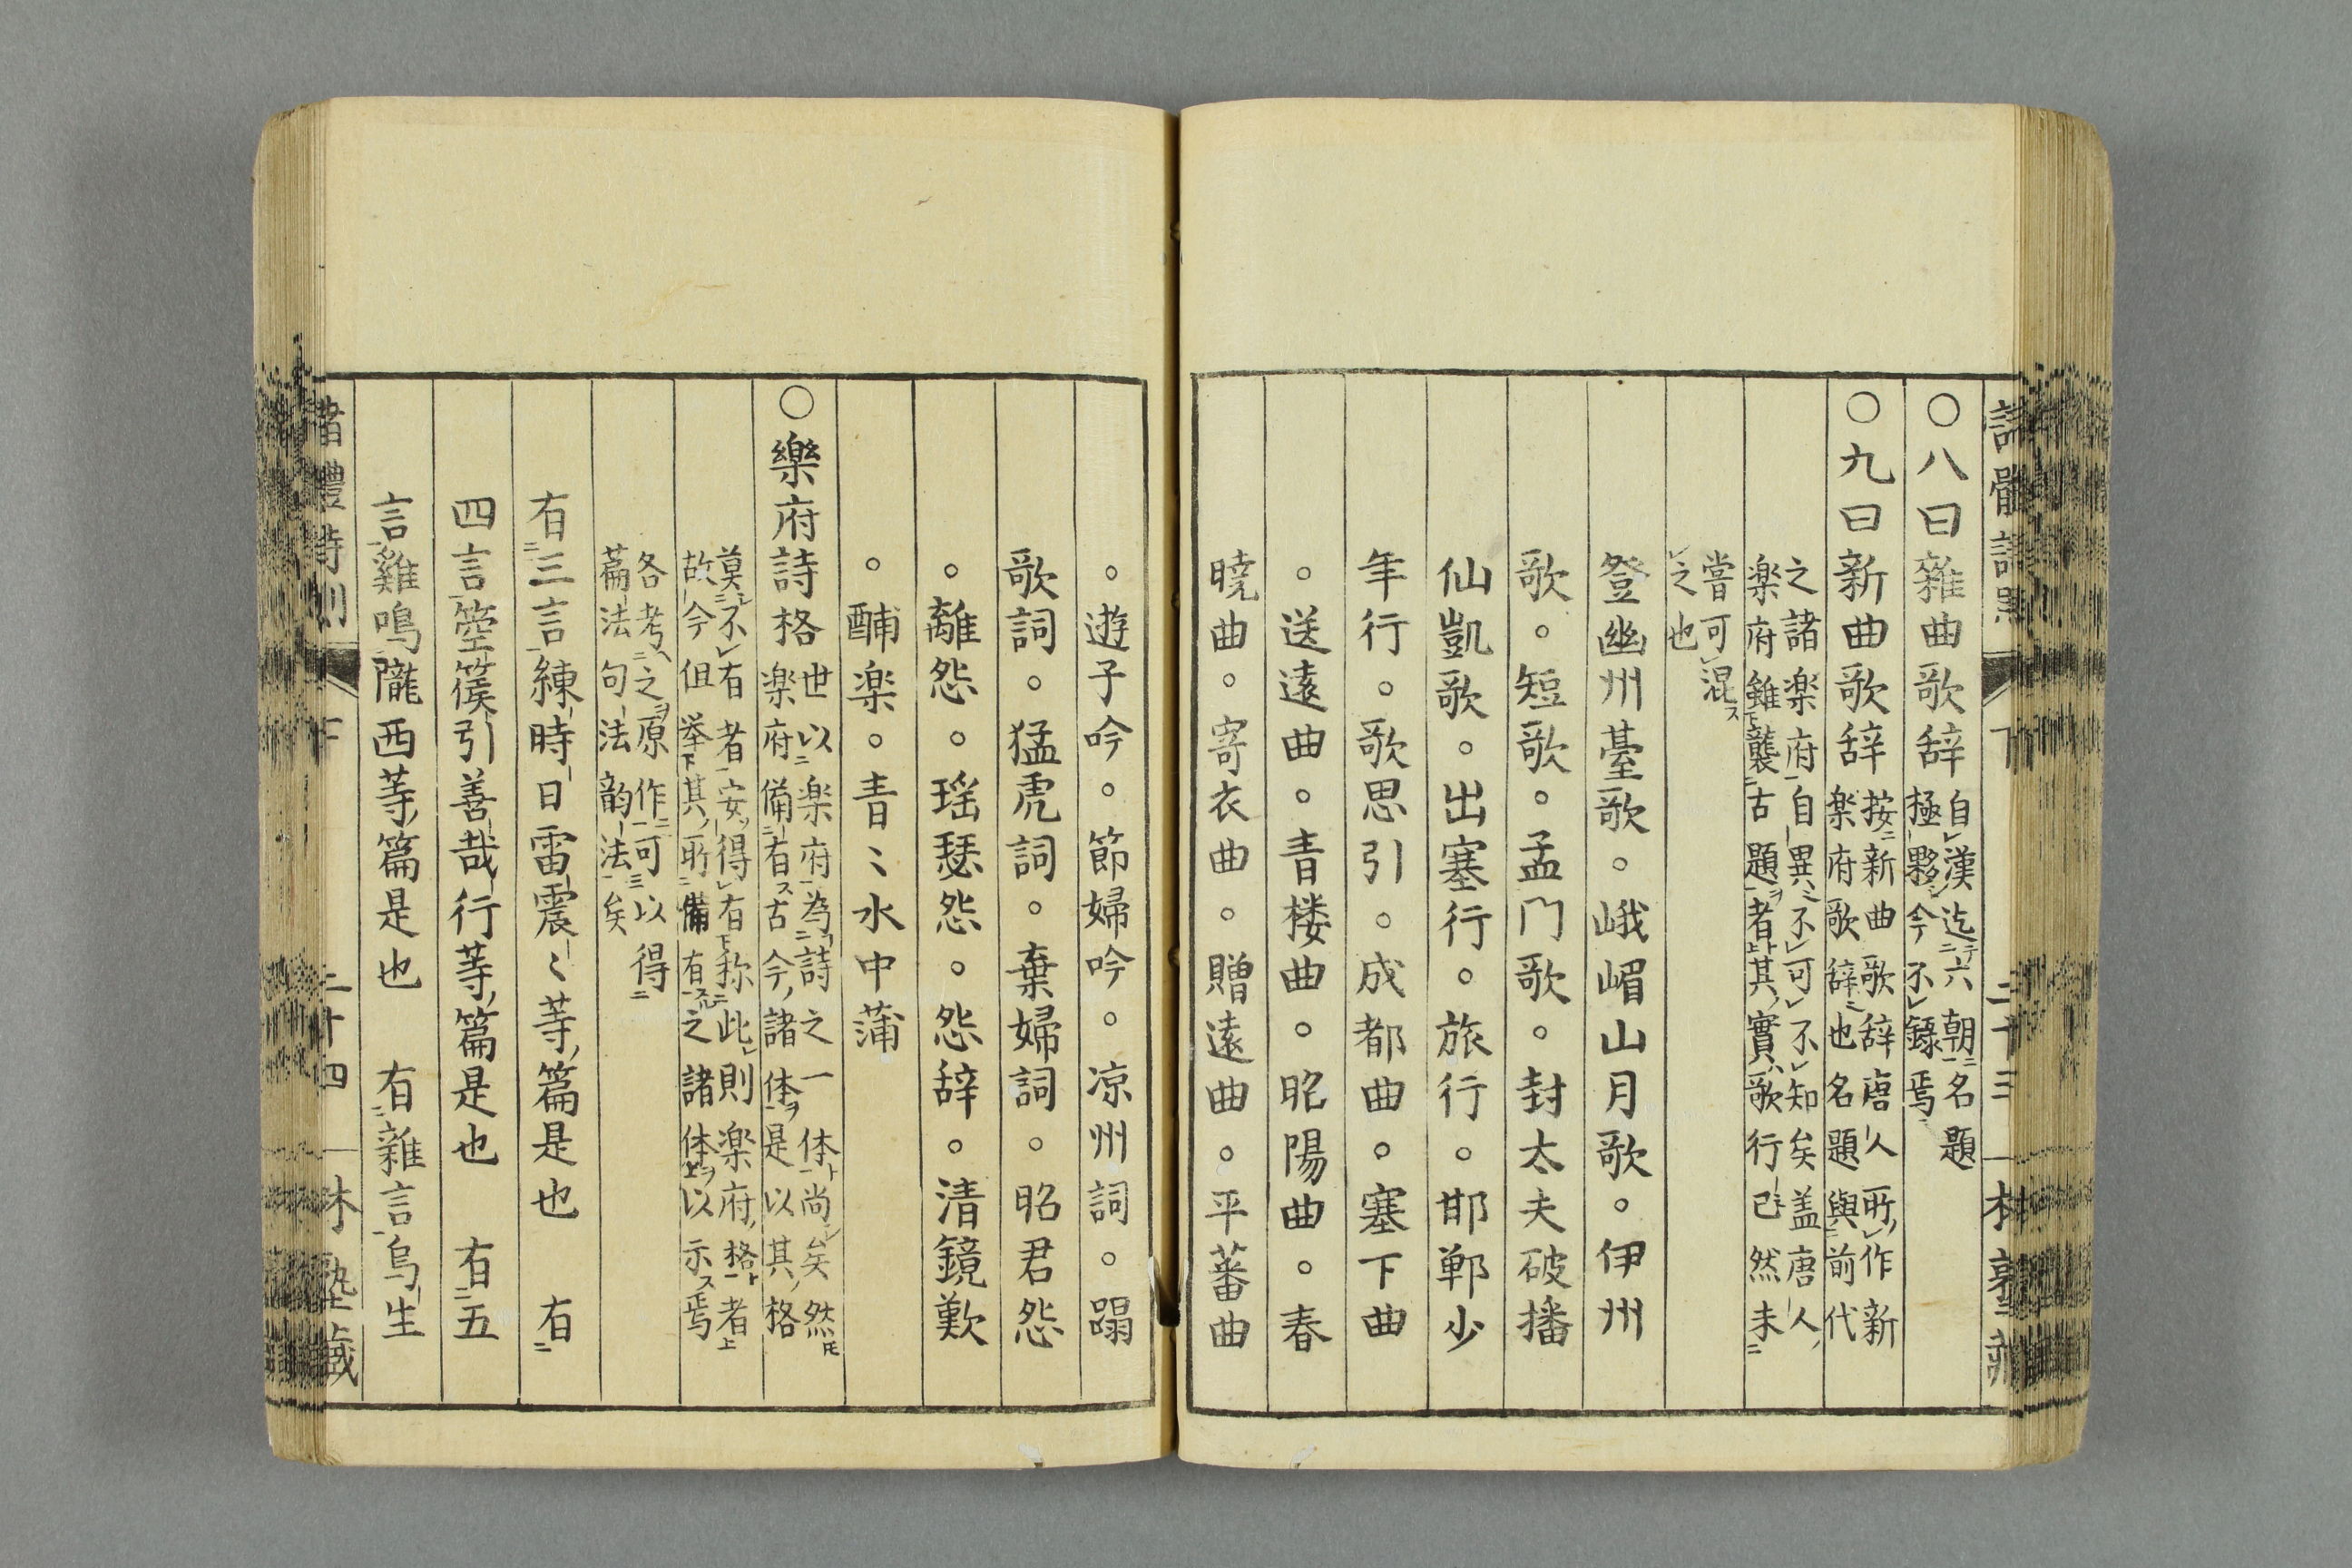 〇八曰雜曲歌辞自漢迄六朝名題
極夥今不録焉
〇九曰新曲歌辞按新曲歌辞唐人所作新
楽府歌辞也名題與前代
之諸楽府自異不可不知矣盖唐人
楽府雖襲古題者其實歌行已然未
嘗可混
之也
登幽州臺歌。峨嵋山月歌。伊州
歌。短歌。孟门歌。封太夫破播
仙凱歌。出塞行。旅行。邯鄲少
年行。歌思引。成都曲。塞下曲
。送遠曲。青楼曲。昭陽曲。春
曉曲。寄衣曲。贈遠曲。平蕃曲
。遊子吟。節婦吟。凉州詞。蹋
歌詞。猛虎詞。棄婦詞。昭君怨
。離怨。瑶瑟怨。怨辞。清鏡歎
。酺楽。青〻水中蒲
〇樂府詩格世以楽府為詩之一体尚矣然𪜈
楽府備有古今諸体是以其格
莫不有者安得有称此則楽府格者
故今但举其所備有之諸体以示焉
各考之原作可以得
篇法句法韵法矣
有三言練時日雷震〻等篇是也　有
四言箜篌引善哉行等篇是也　有五
言雞鳴隴西等篇是也　有雜言烏生
諸體詩則　下　二十三
諸體詩則　下　二十四　一 塾藏